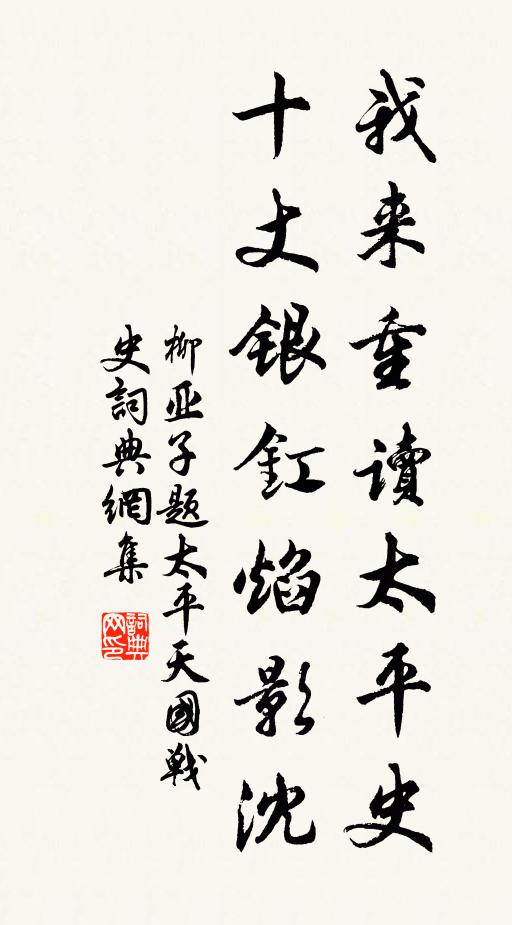 我来重讀太平史
十丈銀釭焰影沈
柳亚子题太平天國戦
史詞典網集
詞典网印